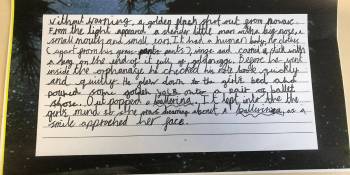 Without worning, a golden flash shot out from
From the light appeared a slender little man with a big nose, a
small mouth and small ears. It had a human body, no clothes
(apart from his pants), wings and carried a stick with
a bag on the end of it full of Before he went
inside the orphanage he checked his note book quickly
and quietly. He flew down to the girls bed and
poured some golden onto a pair of ballet
shose. Out popped a ballerina. It lept into the the
girls mind so she was dreaming about a ballerina, as a
smile approched her face.